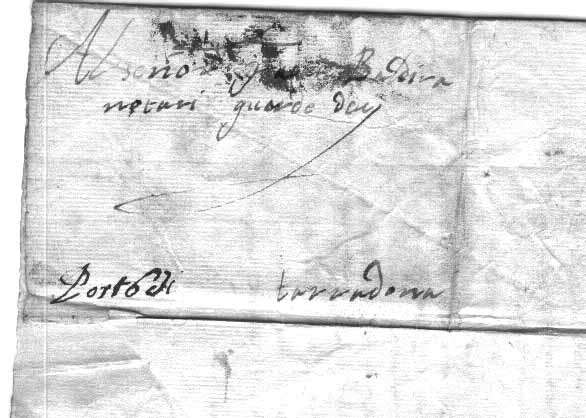 Al señor Badira
notari guarde deu
Porto 6 di tarradona